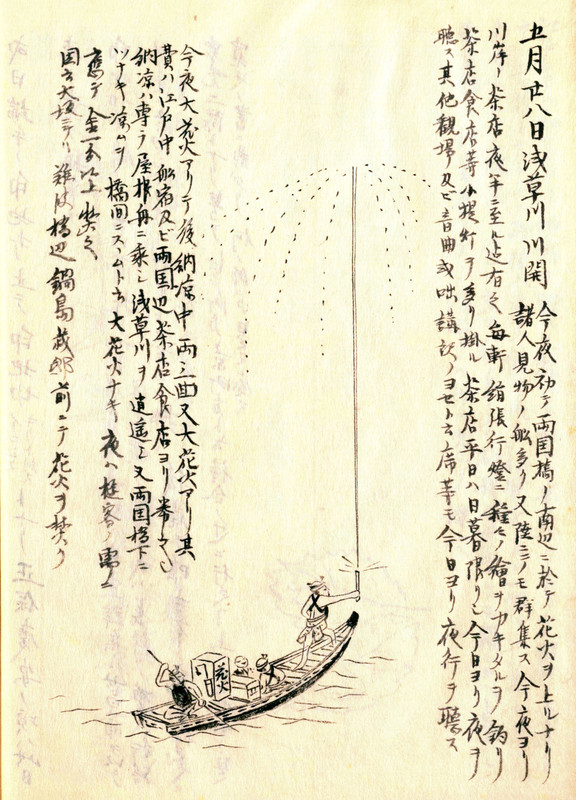 五月廿八日浅草川川開 今夜初テ両国橋ノ南辺ニ於テ花火ヲ上ルナリ
諸人見物ノ船多ク又陸ニノモ群集ス今夜ヨリ
川岸ノ茶店夜半ニ至ル迄有之毎軒絹張行燈ニ種々ノ繪ヲカキタルヲ釣リ
茶店食店等小提灯ヲ多ク掛ル茶店平日ハ日暮限リシ今日ヨリ夜ヲ
聴ス其他観場及ビ音曲或咄講訳ノヨセト云席等モ今日ヨリ夜行ヲ聴ス
今夜大花火アリテ後納凉中両三曲又大花火アリ其
費ハ江戸中船宿及ビ両国辺茶店食店ヨリ募之也
納凉ハ専ラ屋根舟ニ乗シ浅草川ヲ逍遥シ又両国橋下ニ
ツナキ凉ムヲ橋間ニスヽムト云大花火ナキ夜ハ遊客ノ需ニ
應テ金一両以上焚之
因云大坂ニテハ難波橋辺鍋島蔵邸前ニテ花火ヲ焚ク
花火